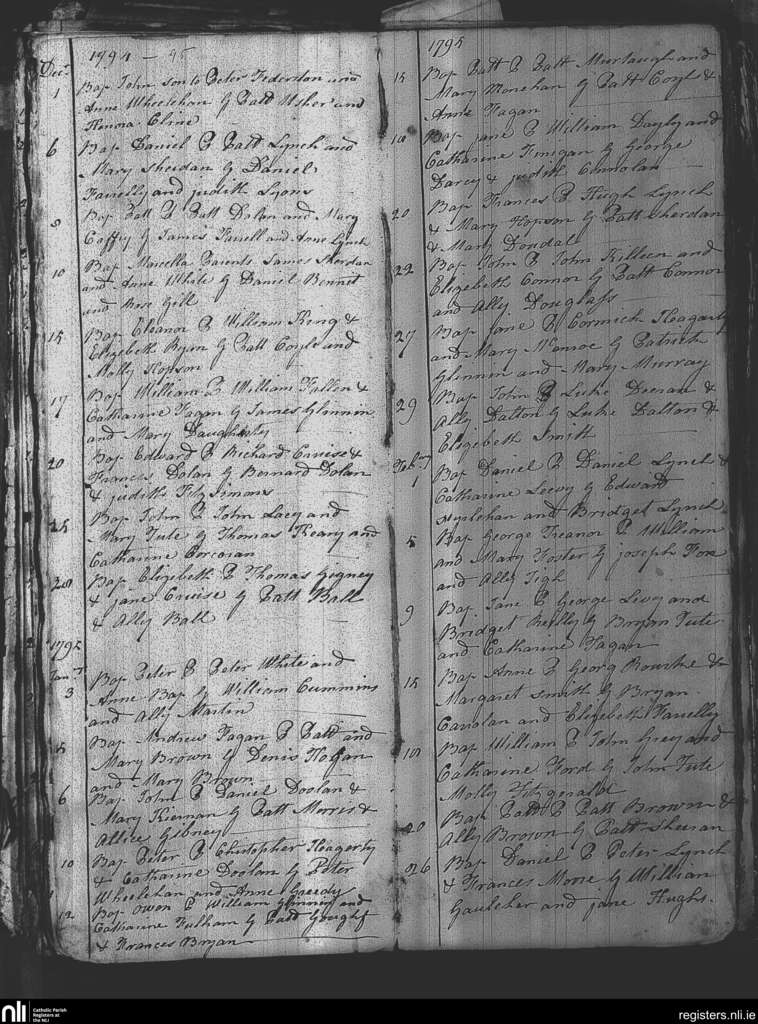 1794 - 95
Decr
1 Bap John son to Peter Federstan and
Anne Wheelehan G Patt Usher and
Honora Cline
6 Bap Daniel P Patt Lynch and
Mary Sheridan G Daniel
Farrelly and judith Lyons
8 Bap Patt P Patt Dolan and Mary
Coffey G James Farrell and Anne Lynch
10 Bap Marcella Parents James Sherdan
and Anne White G Daniel Bennet
and Rose Gill
15 Bap Eleanor P William King &
Elizebeth Ryan G Patt Coyle and
Molly Hopson
17 Bap William P William Fallen &
Catharine Fagan G James Glinnen
and Mary Daugherty
20 Bap Edward P Richard Cruise &
Frances Dolan G Bernard Dolan
& judith Fitzsimons
25 Bap John P John Lacey and
Mary Tute G Thomas Heany and
Catharine Corcoran
28 Bap Elizebeth P Thomas Gegney
& jane Cruise G Patt Ball
& Ally Ball
1795
Janry
3 Bap Peter P Peter White and
Anne Bap G William Cummins
and Ally Martin
5 Bap Andrew Fagan P Patt and
Mary Brown G Denis Hogan
and Mary Brown
6 Bap John P Daniel Doolan &
Mary Kiernan G Patt Morris &
Allice Gibney
10 Bap Peter P Christopher Heagerty
& Catharine Doolan G Peter
Wheelehan and Anne Greedy
12 Bap Owen P William Glinnen and
Catharine Fulham G Patt Gough
& Frances Bryan
1795
15 Bap Patt P Patt Murtaugh and
Mary Monehan G Patt Coyl &
Anne Fagan
18 Bap jane P William Dayly and
Catharine Finigan G George
Darcy & judith Connolan
20 Bap Frances P Hugh Lynch
& Mary Hopson G Patt Sherdan
& Mary Dowdale
22 Bap John P John Killeen and
Elizebeth Connor G Patt Connor
and Ally Douglass
27 Bap jane P Cormick Heagarty
and Mary Monroe G Patrick
Glinnen and Mary Murray
29 Bap John P Luke Deenan &
Ally Dalton G Luke Dalton &
Elizebeth Smith
Febry
1 Bap Daniel P Daniel Lynch &
Catharine Leevy G Edward
and Bridget Lynch
5 Bap George Treanor P William
and Mary Foster G joseph Fox
and Ally Tigh
9 Bap Jane P George Livey and
Bridget Reilly G Bryan Tute
and Catharine Fagan
15 Bap Anne P Georg Rourke &
Margaret Smith G Bryan
Carolan and Elizebeth Farrelly
18 Bap William P John Grey and
Catharine Ford G John Tute
Molly Fitzgerald
20 Bap Patt P Patt Browne &
Ally Brown G Patt Sheeran
26 Bap Daniel P Peter Lynch
& Frances Moore G William
Gauleher and jane Hughs.
nli
Catholic Parish
Registers at
the NLI
registers.nli.ie